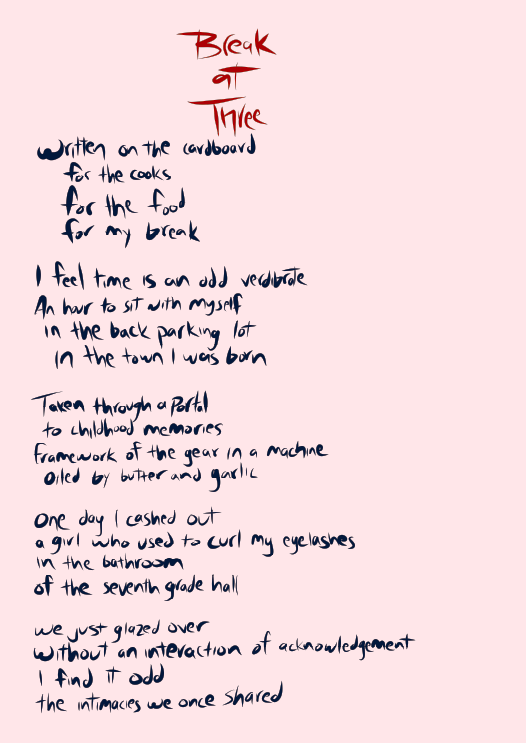 Break
at
Three
Written on the cardboard
for the cooks
for the food
for my break
I feel time is an odd verdibrate
An hour to sit with myself
in the back parking lot
in the town I was born
Taken through a Portal
to childhood memories
framework of the gear in a machine
Oiled by butter and garlic
One day I cashed out
a girl who used to curl my eyelashes
in the bathroom
of the seventh grade hall
we just glazed over
without an interaction of acknowledgement
I find it odd
the intimacies we once shared